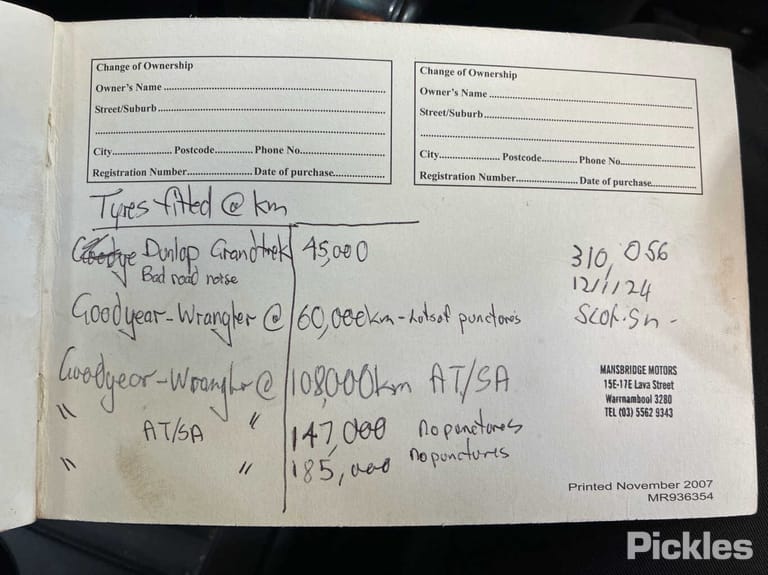 Change of Ownership
Owner's Name
Street/Suburb
City Postcode Phone No.
Registration Number Date of purchase
Change of Ownership
Owner's Name
Street/Suburb
City Postcode Phone No.
Registration Number Date of purchase
Tyres fitted @ km
Dunlop Grandtrek 45,000
Bad road noise
Goodyear-Wrangler @ 60,000km - Lots of punctores
Goodyear-Wrangler @ 108,000km AT/SA
" AT/SA " 147,000 No punctores
" " 185,000 no punctures
310,056
12/1/24
MANSBRIDGE MOTORS
15E-17E Lava Street
Warrnambool 3280
TEL (03) 5562 9343
Printed November 2007
MR936354
Pickles